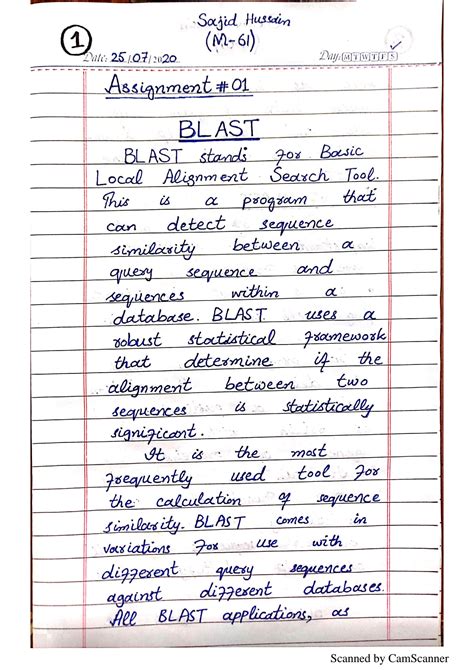 Sajid Hussain
(M-61)
1
Date: 25/07/2020 Day: M T W T F S
Assignment #01
BLAST
BLAST stands for Basic
Local Alignment Search Tool.
This is a program that
can detect sequence
similarity between a
query sequence and
sequences within a
database. BLAST uses a
robust statistical framework
that determine if the
alignment between two
sequences is statistically
significant.
It is the most
frequently used tool for
the calculation of sequence
similarity. BLAST comes in
variations for use with
different query sequences
against different databases.
All BLAST applications, as
Scanned by CamScanner